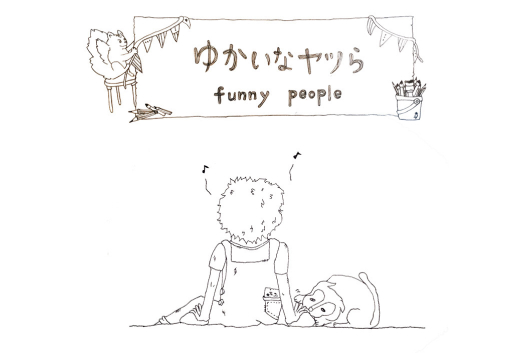 ゆかいなヤツら
funny people